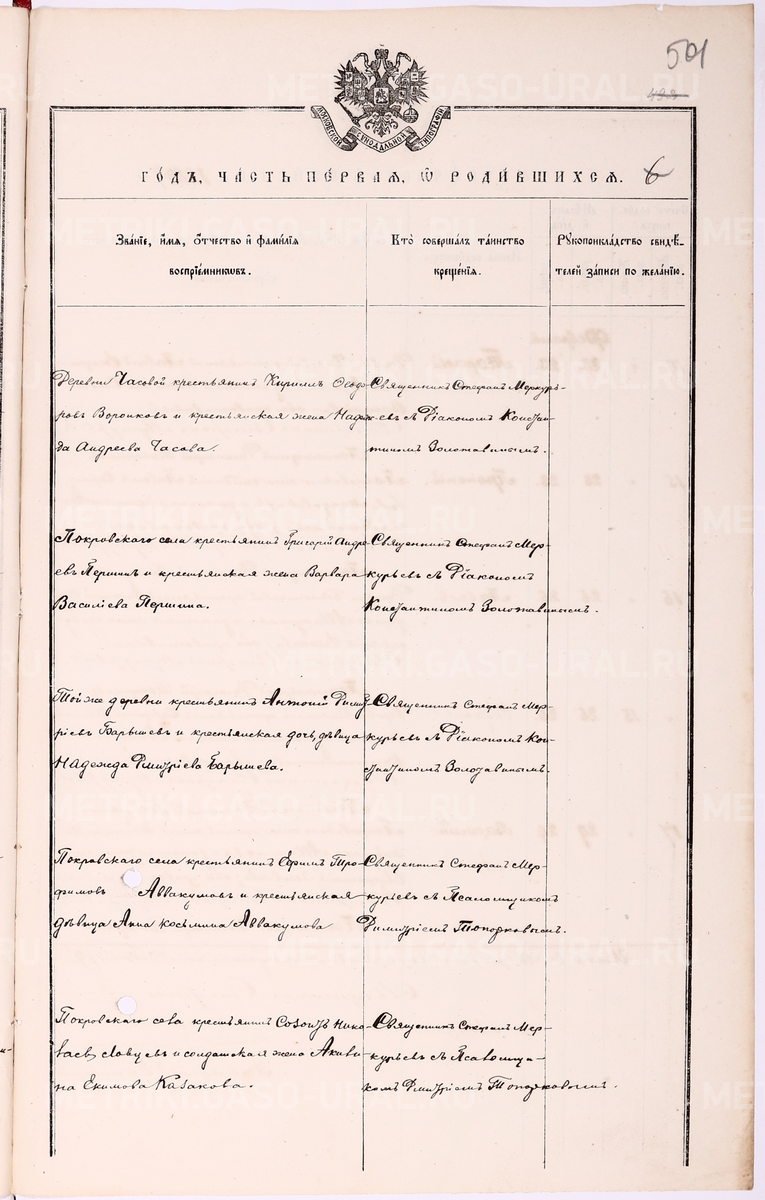 501
499
МОСКОВСКОЙ СѴНОДАЛЬНОЙ ТИПОГРАФІИ
ГО́ДЪ, ЧА́СТЬ ПЕ́РВАЯ, Ѡ҆ РОДИ́ВШИХСЯ. 6
Зва́нїе, и҆́мя, ѻ҆́тчество и҆ фами́лїя
воспрїе́мникѡвъ.
Кто̀ соверша́лъ та́инство
креще́нїя.
Рꙋкоприкла́дство свидѣ́-
телей за́писи по жела́нїю.
Деревни Часовой крестьянинъ Кириллъ Ѳеодо-
ровъ Воронковъ и крестьянская жена Надеж-
да Андреева Часова.
Священникъ Стефанъ Меркурь-
евъ съ Діакономъ Констан-
тиномъ Золотавинымъ.
Покровскаго села крестьянинъ Григорій Андре-
евъ Першинъ и крестьянская жена Варвара
Василіева Першина.
Священникъ Стефанъ Мер-
курьевъ съ Діакономъ
Константиномъ Золотавинымъ.
Той же деревни крестьянинъ Антоній Димит-
ріевъ Барышевъ и крестьянская дочь, дѣвица
Надежда Димитріева Барышева.
Священникъ Стефанъ Мер-
курьевъ съ Діакономъ Кон-
стантиномъ Золотавинымъ.
Покровскаго села крестьянинъ Ефимъ Тро-
фимовъ Аввакумовъ и крестьянская
дѣвица Анна Косьмина Аввакумова
Священникъ Стефанъ Мер-
курьевъ съ Псаломщикомъ
Димитріемъ Топорковымъ.
Покровскаго села крестьянинъ Созонтъ Нико-
лаевъ и солдатская жена Акили-
на Екимова Казакова.
Священникъ Стефанъ Мер-
курьевъ съ Псаломщи-
комъ Димитріемъ Топорковымъ.
METRIKI.GASO-URAL.RU